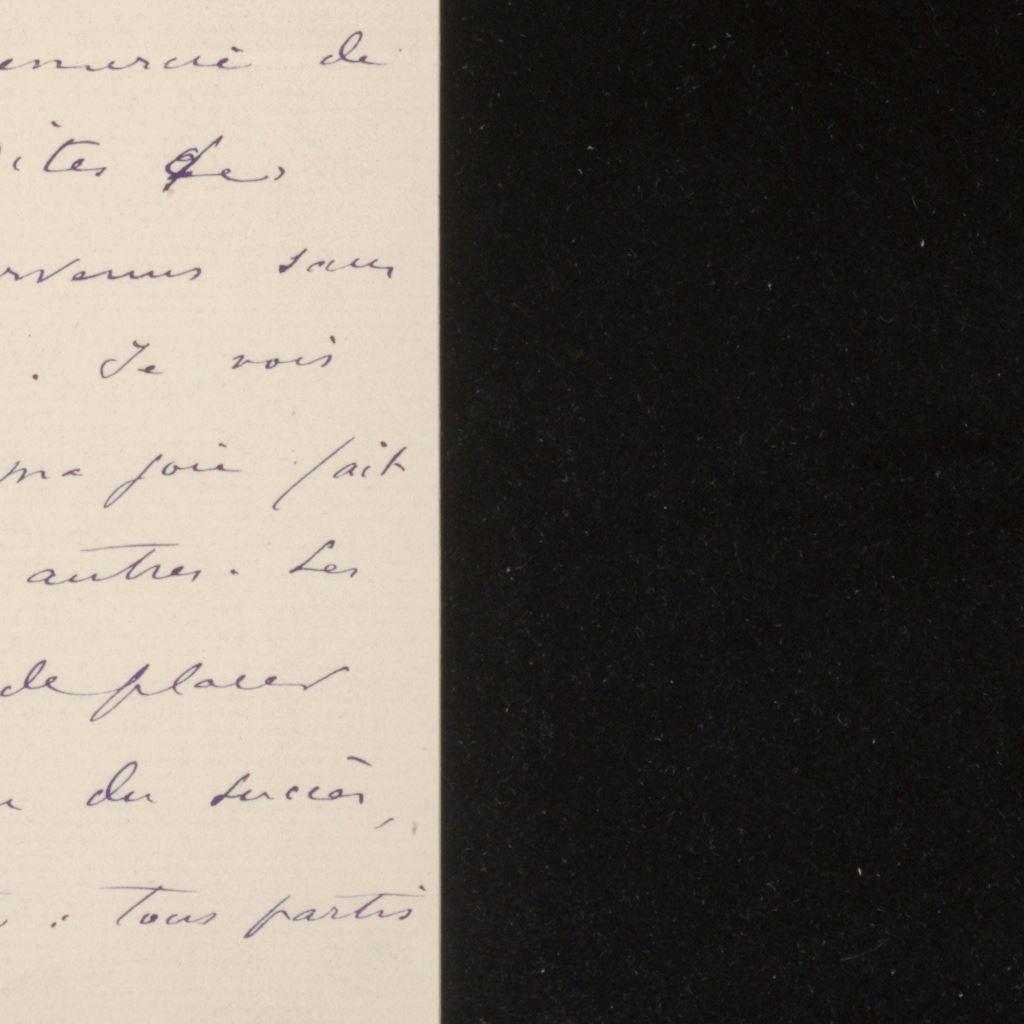 emercie de
ites des
rvenus sans
. Je vois
ma joie fait
autres. Les
de placer
du succès,
: tous partis